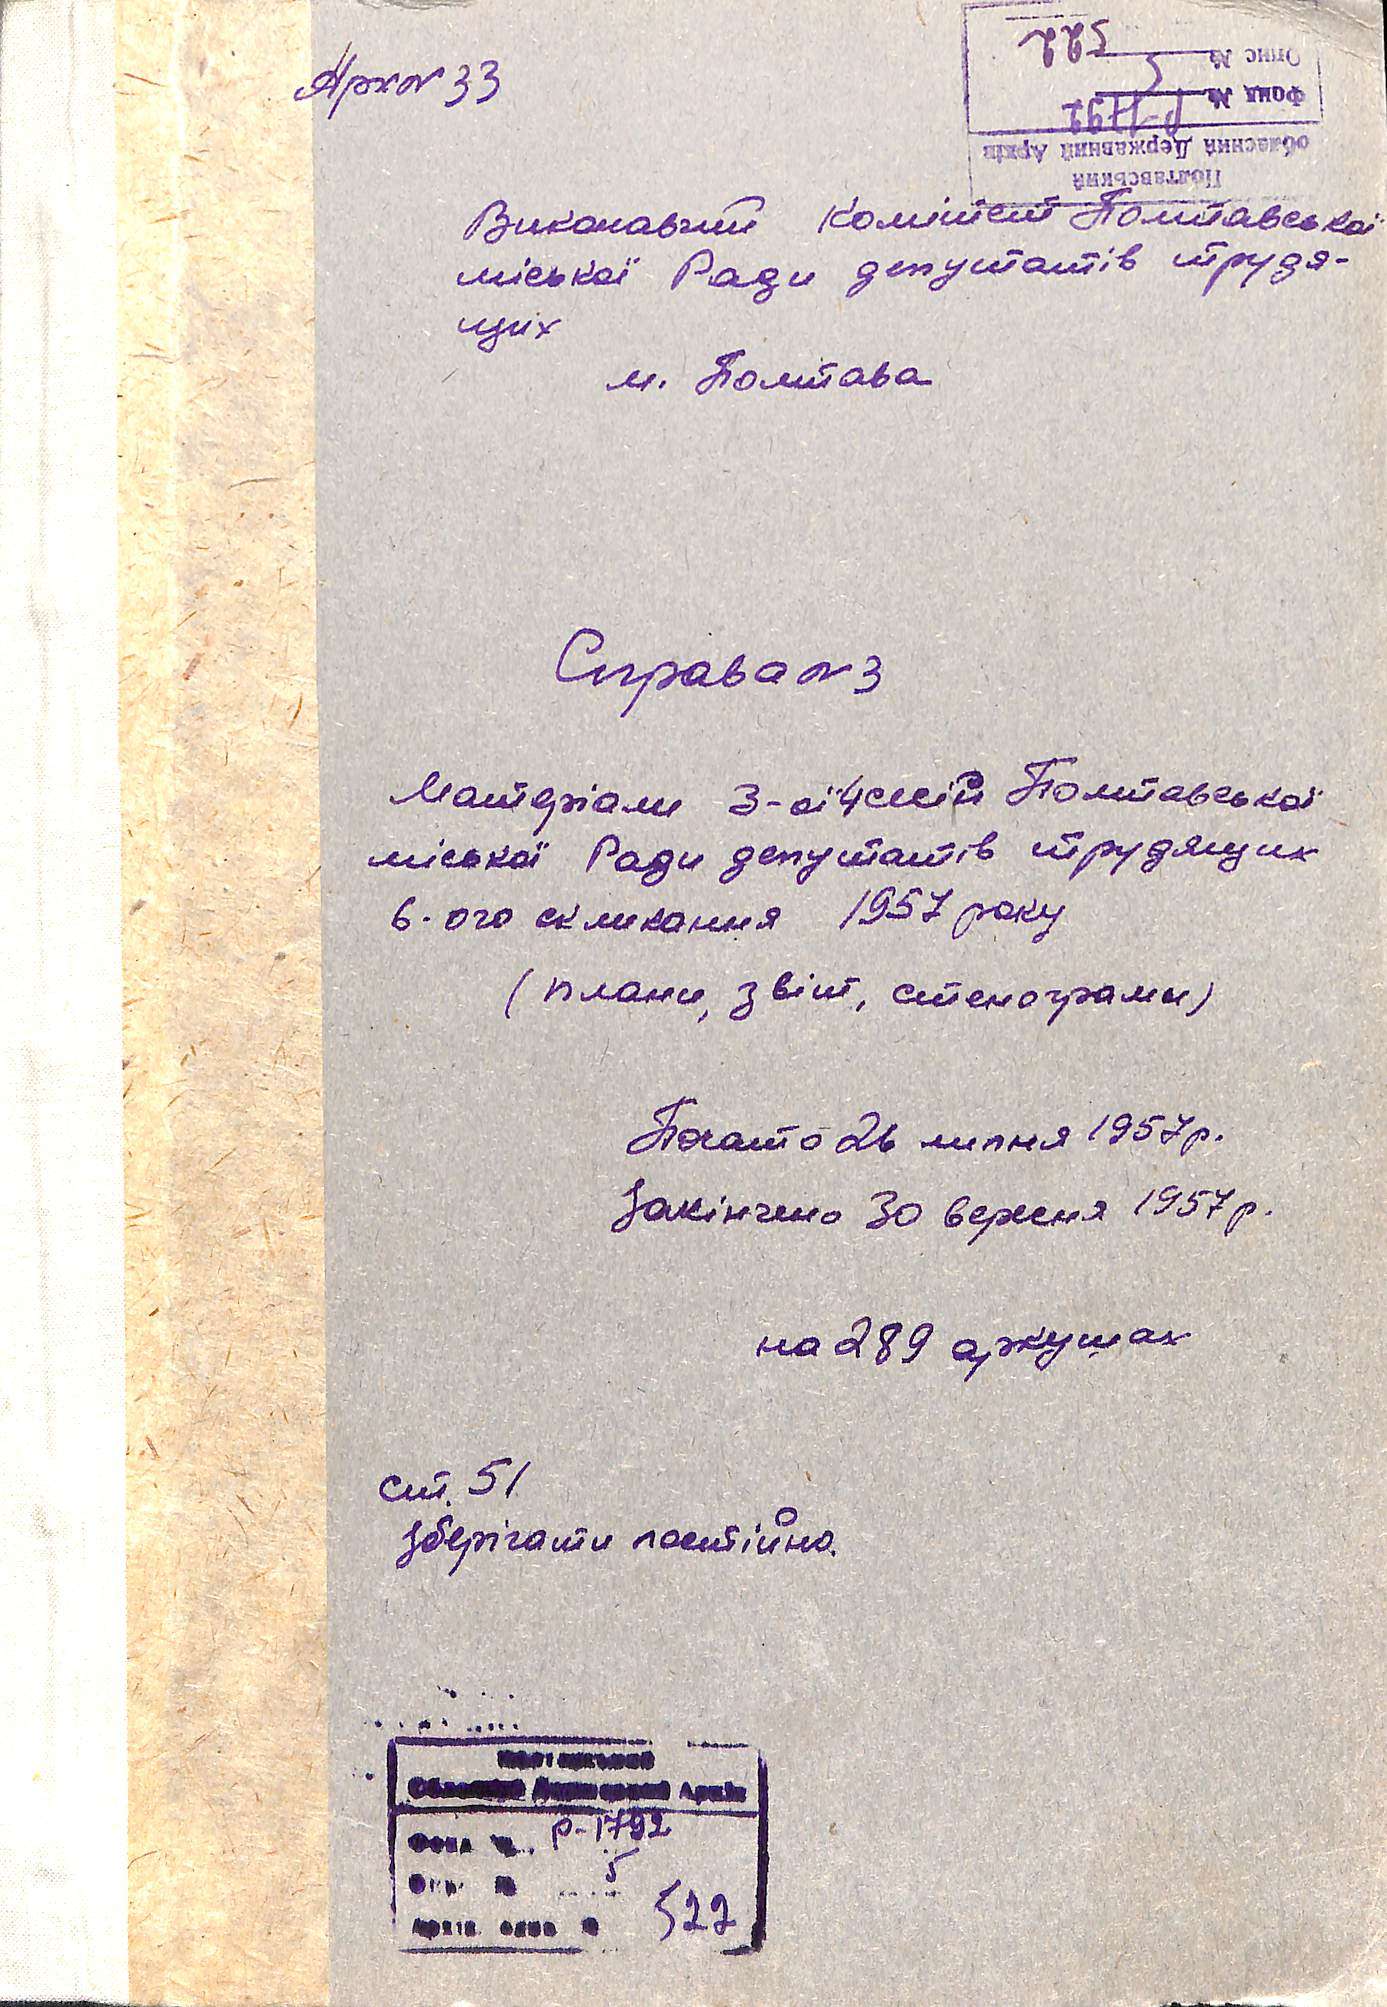 Арх № 33
Полтавський
обласний Державний Архів
Фонд № Р-1792
Опис № 5
522
Виконавчий комітет Полтавської
міської Ради депутатів трудя-
щих
м. Полтава
Справа № 3
Матеріали 3-ої 4 сесій Полтавської
міської Ради депутатів трудящих
6-ого скликання 1957 року
(плани, звіт, стенограми)
Почато 26 липня 1957 р.
Закінчено 30 вересня 1957 р.
на 289 аркушах
ст. 51
Зберігати постійно.
Полтавський
Обласний Державний Архів
Фонд № Р-1792
Опис № 5
Архів. один. № 522